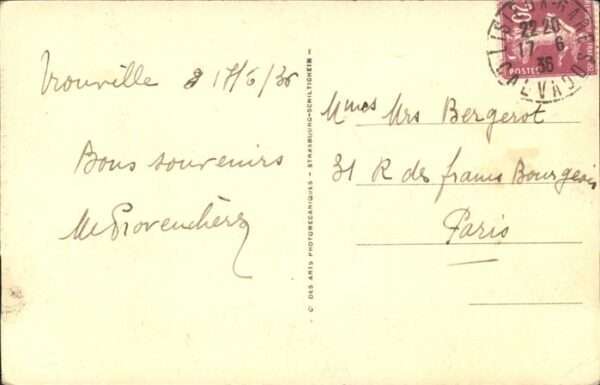 Trouville 17/6/36
Bons souvenirs
Mmes Mrs Bergerot
31 R des francs Bourgeois
Paris
Cie DES ARTS PHOTOMECANIQUES - STRASBOURG-SCHILTIGHEIM -
20
POSTES
LISIEUX-GARE
22 20
17 - 6
36
CALVADOS